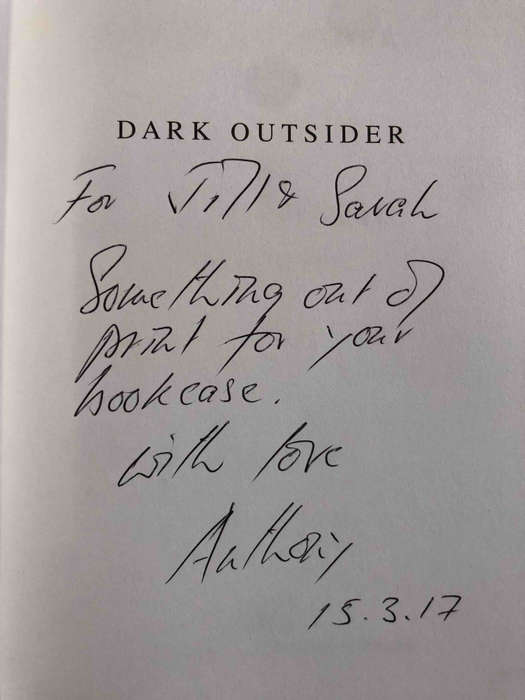 DARK OUTSIDER
For Jill & Sarah
Something out of
print for your
bookcase.
with love
Anthony
15.3.17